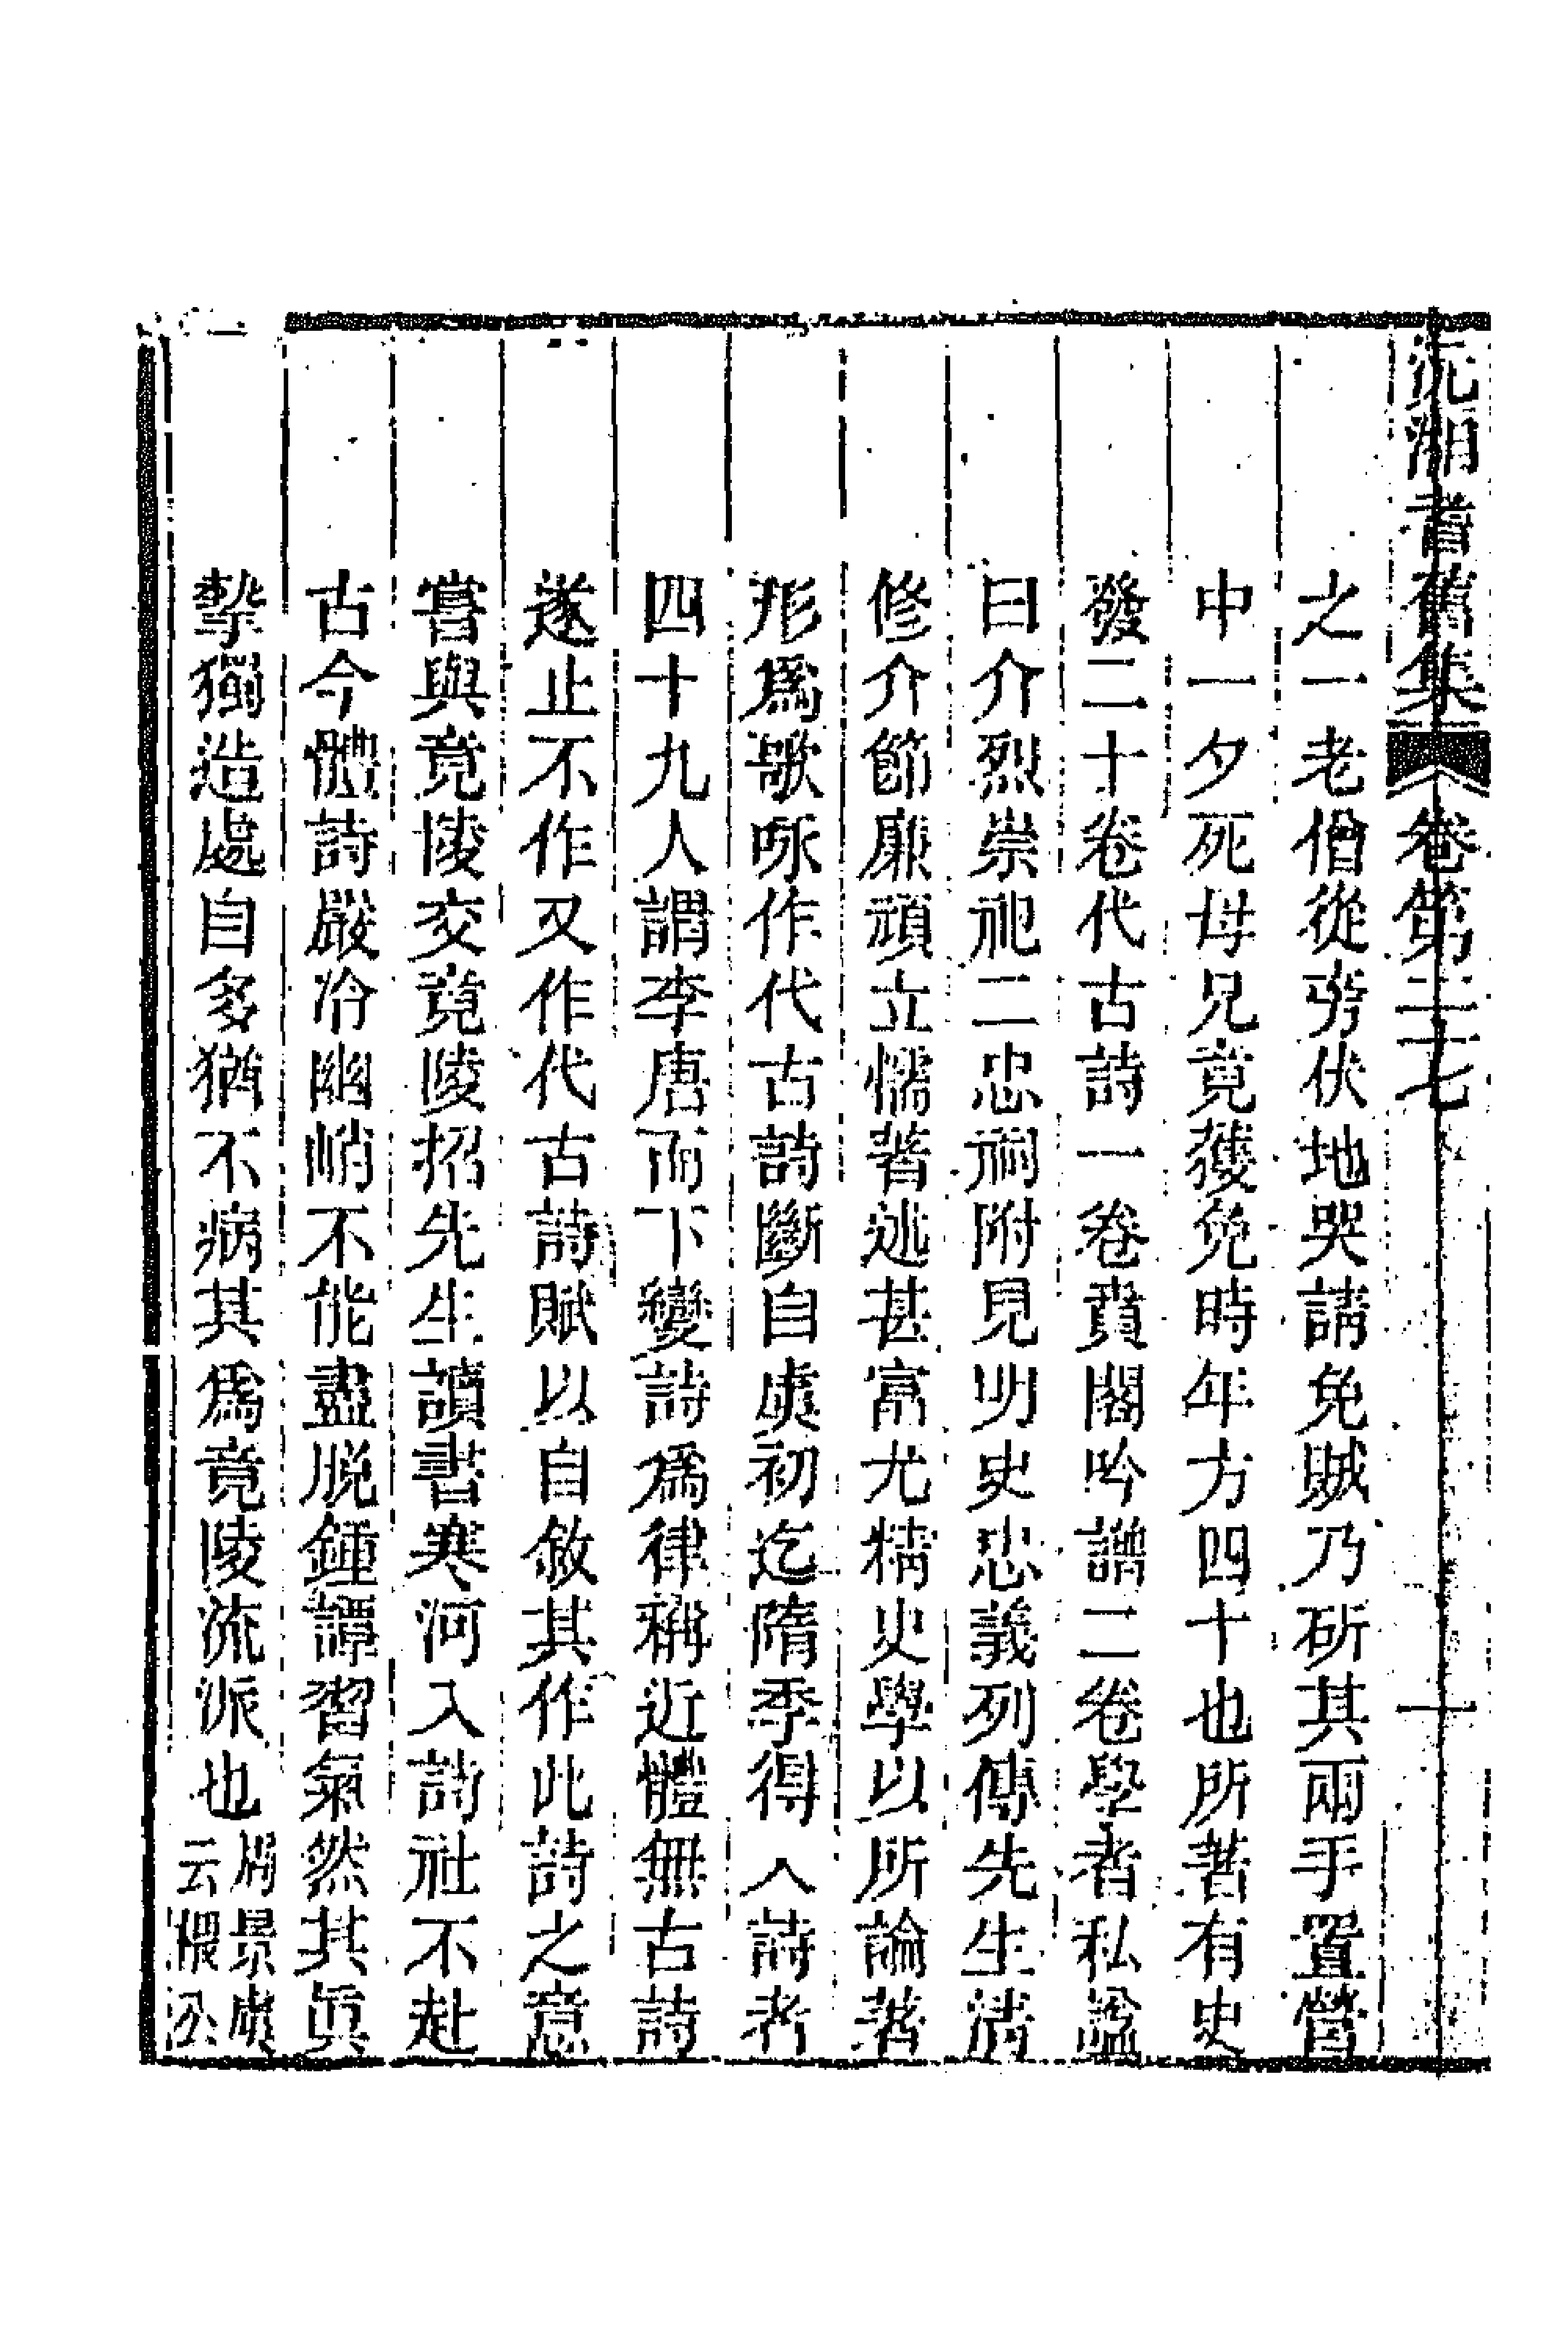 沅湘耆舊集 卷第二十七 十
之一老僧從旁伏地哭請免賊乃斫其兩手置營
中一夕死母兄竟獲免時年方四十也所著有史
發二十卷代古詩一卷賁閣吟譜二卷學者私諡
曰介烈崇祀二忠祠附見明史忠義列傳先生清
修介節廉頑立懦著述甚富尤精史學以所論著
形爲歌咏作代古詩斷自虞初迄隋季得入詩者
四十九人謂李唐而下變詩爲律稱近體無古詩
遂止不作又作代古詩賦以自敘其作此詩之意
嘗與竟陵交竟陵招先生讀書寒河入詩社不赴
古今體詩嚴冷幽峭不能盡脫鍾譚習氣然其眞
摯獨造處自多猶不病其爲竟陵流派也周景虞云偎公